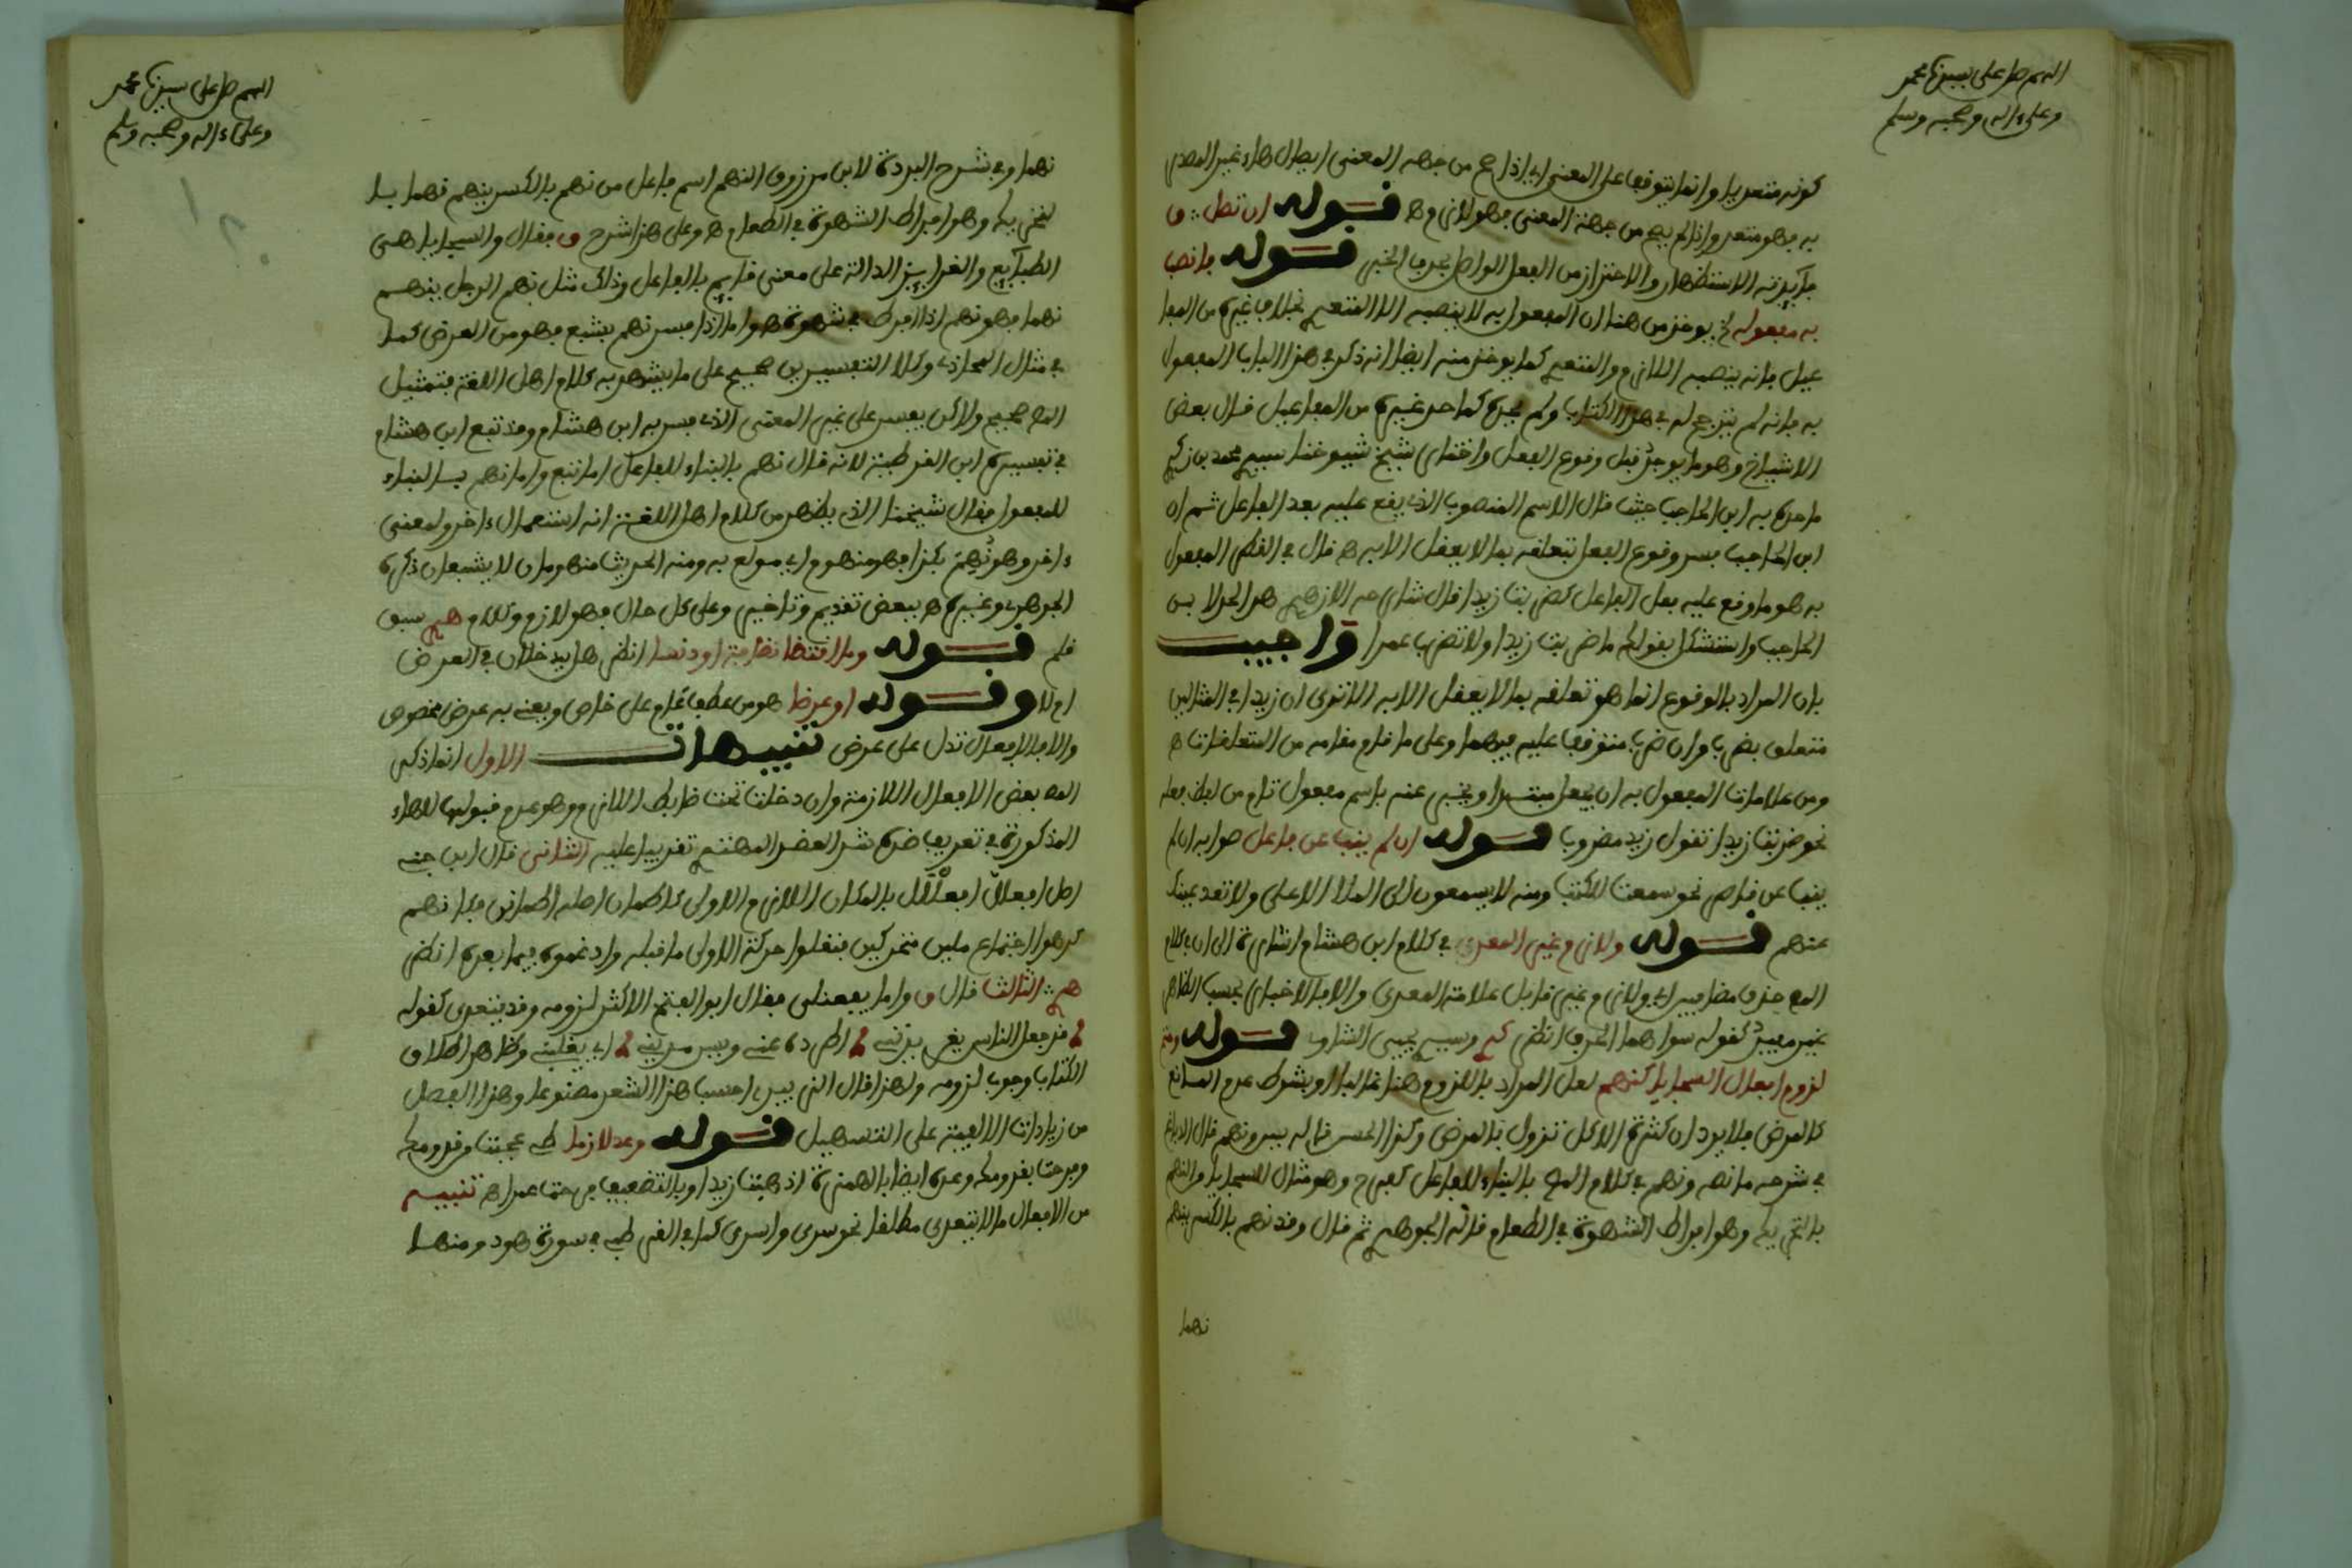 اللهم صل على سيدنا محمد
وعلى ءاله وصحبه وسلم
كونه متعديا وانما يتوقف على المعنى اي اذا صح من جهة المعنى ايصال هاء غير المصدر
به فهو متعد واذا لم يصح من جهة المعنى فهو لازم اه قوله ان تصل ق
فائدته الاستظهار والاحتراز من الفعل الواصل بحرف الجر قوله فانصب
به مفعوله يوخذ من هنا ان المفعول به لا ينصبه الا المتعدي بخلاف غيره من المفا
عيل فانه ينصبه اللازم والمتعدي كما يوخذ منه ايضا انه ذكر في هذا الباب المفعول
به فانه لم يترجم له في هذا الكتاب ولم يحده كما حد غيره من المفاعيل قال بعض
الاشياخ وهو ما يوجد قبل وقوع الفعل واختار شيخ شيوخنا سيدي محمد بن زكري
ما حده به ابن الحاجب حيث قال الاسم المنصوب الذي يقع عليه بعد الفاعل ثم ان
ابن الحاجب فسر وقوع الفعل بتعلقه بما لا يعقل الا به اه قال في القطر المفعول
به هو ما وقع عليه فعل الفاعل كضربت زيدا قال شارحه الازهري هو الحد لابن
الحاجب واستشكل بقولك ما ضربت زيدا ولا تضرب عمرا واجيب
بان المراد بالوقوع انما هو تعلقه بما لا يعقل الا به الا ترى ان زيدا في المثالين
متعلق بضرب وان ضرب متوقف عليه فيهما وعلى ما قام مقامه من المتعلقات اه
ومن علامات المفعول به ان يجعل مبتدا ويخبر عنه باسم مفعول تام من لفظ فعله
نحو ضربت زيدا تقول زيد مضروب قوله ان لم ينب عن فاعل صوابه ان لم
ينب عن خافض نحو سمعت الكتب ومنه لا يسمعون الى الملا الاعلى ولا تعد عينك
عنهم قوله ولازم غير المعدى في كلام ابن هشام اشارة الى ان في كلام
المص حذف مضافين اي ولازم غير قابل علامة المعدى والا فالاخبار بحسب الظاهر
غير مفيد كقوله سواهما الحرف انظر وسيدي يحيى الشاوي قوله وحتم
لزوم افعال السجايا كنهم لعل المراد باللزوم هنا غالبا او بشرط عدم المانع
كالمرض فلا يرد ان كثرة الاكل تزول بالمرض وكذا الحسن قاله يس ونهم قال
في شرحه ما نصه ونهم في كلام المص بالبناء للفاعل كفرح وهو مثال للسجايا والنهم
بالتحريك وهو افراط الشهوة في الطعام قاله الجوهري ثم قال وقد نهم بالكسر ينهم
نهما
اللهم صل على سيدنا محمد
وعلى ءاله وصحبه وسلم
نهما وفي شرح البردة لابن مرزوق النهم اسم فاعل من نهم بالكسر ينهم نهما با
لتحريك وهو افراط الشهوة في الطعام اه وعلى هذا شرح ق فقال والسجايا هي
الطبايع والغرايز الدالة على معنى قايم بالفاعل وذلك مثل نهم الرجل ينهم
نهما فهو نهم اذا افرط في شهوته واما اذا فسر نهم بشبع فهو من العرض كما
في مثال المحاذي وكلا التفسيرين صحيح على ما يشهد به كلام اهل اللغة فتمثيل
المص صحيح ولاكن يفسر على غير المعنى الذي فسر به ابن هشام وقد تبع ابن هشام
في تفسيره ابن القرطبية لانه قال نهم بالبناء للفاعل اما تبع واما نهم بالبناء
للمفعول فقال شيخنا الذي يظهر من كلام اهل اللغة انه استعمال ءاخر ولمعنى
ءاخر وهو نُهِمَ بكذا فهو منهوم اي مولع به ومنه الحديث منهومان لا يشبعان ذكره
الجوهري وغيره اه ببعض تقديم وتاخير وعلى كل حال فهو لازم وكلام سبق
قلم قوله وما اقتضا نظافة او دنسا انظر هل يدخلان في العرض
ام لا وقوله او عرضا هو من عطف عام على خاص ويعني به عرض مخصوص
والا فالافعال تدل على عرض تنبيهات الاول انما ذكر
المص بعض الافعال اللازمة وان دخلت تحت ضابط اللازم وهو عدم قبولها للهاء
المذكورة في تعريف ضده شد العضد المبتدي تقريبا عليه الثاني قال ابن جني
اصل افعللّ افعلْلَلَ بالمكان اللازم الاولى كاطمان اصله اطمانن فكانهم
كرهوا اجتماع مثلين متحركين فنقلوا حركة الاولى ما قبله وادغموه فيما بعده انظر
الثالث قال ق واما يفعنلى فقال ابو الفتح الاكثر لزومه وقد يتعدى كقوله
قد جعل النعاس يغرنديني اطرده عني ويسرنديني اي يغلبني وظاهر اطلاق
الكتاب وجوب لزومه ولهذا قال الزبيدي احسب هذا الشعر مصنوعا وهذا الفصل
من زيادات الالفية على التسهيل قوله وعد لازما طب عجبت من قدومك
وفرحت بقدومك وعده ايضا بالهمزة اذهبت زيدا وبالتضعيف فرحت عمرا اه تنبيه
من الافعال ما لا يتعدى مطلقا نحو سرى واسرى كما في الغر طب في سورة هود ومنها